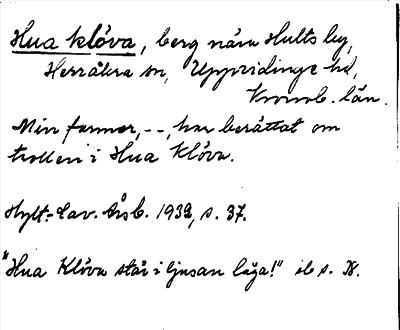 Hua klôva, berg nära Hults by,
Herråkra sn, Uppvidinge hd,
Kronob. län.
Min farmor, --, har berättat om
trollen i Hua Klôva.
Hylt.-Cav. Årsb. 1932, s. 37.
"Hua Klôva står i ljusan låga!" ib s.